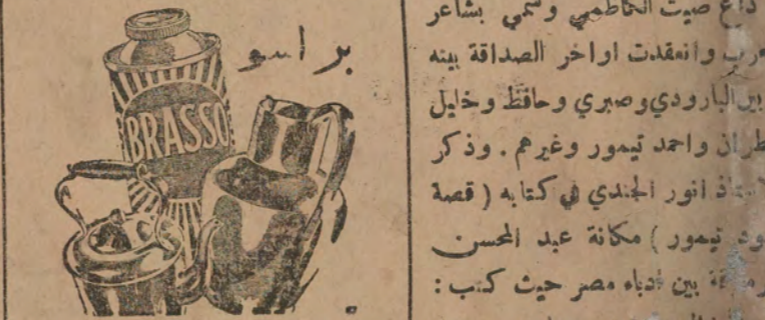 ذاع صيت الكاظمي وسمي بشاعر
العرب وانعقدت اواخر الصداقة بينه
وبين البارودي وصبري وحافظ وخليل
مطران واحمد تيمور وغيرهم . وذكر
الاستاذ انور الجندي في كتابه ( قصة
تيمور ) مكانة عبد المحسن
بين ادباء مصر حيث كتب :
براسو
BRASSO